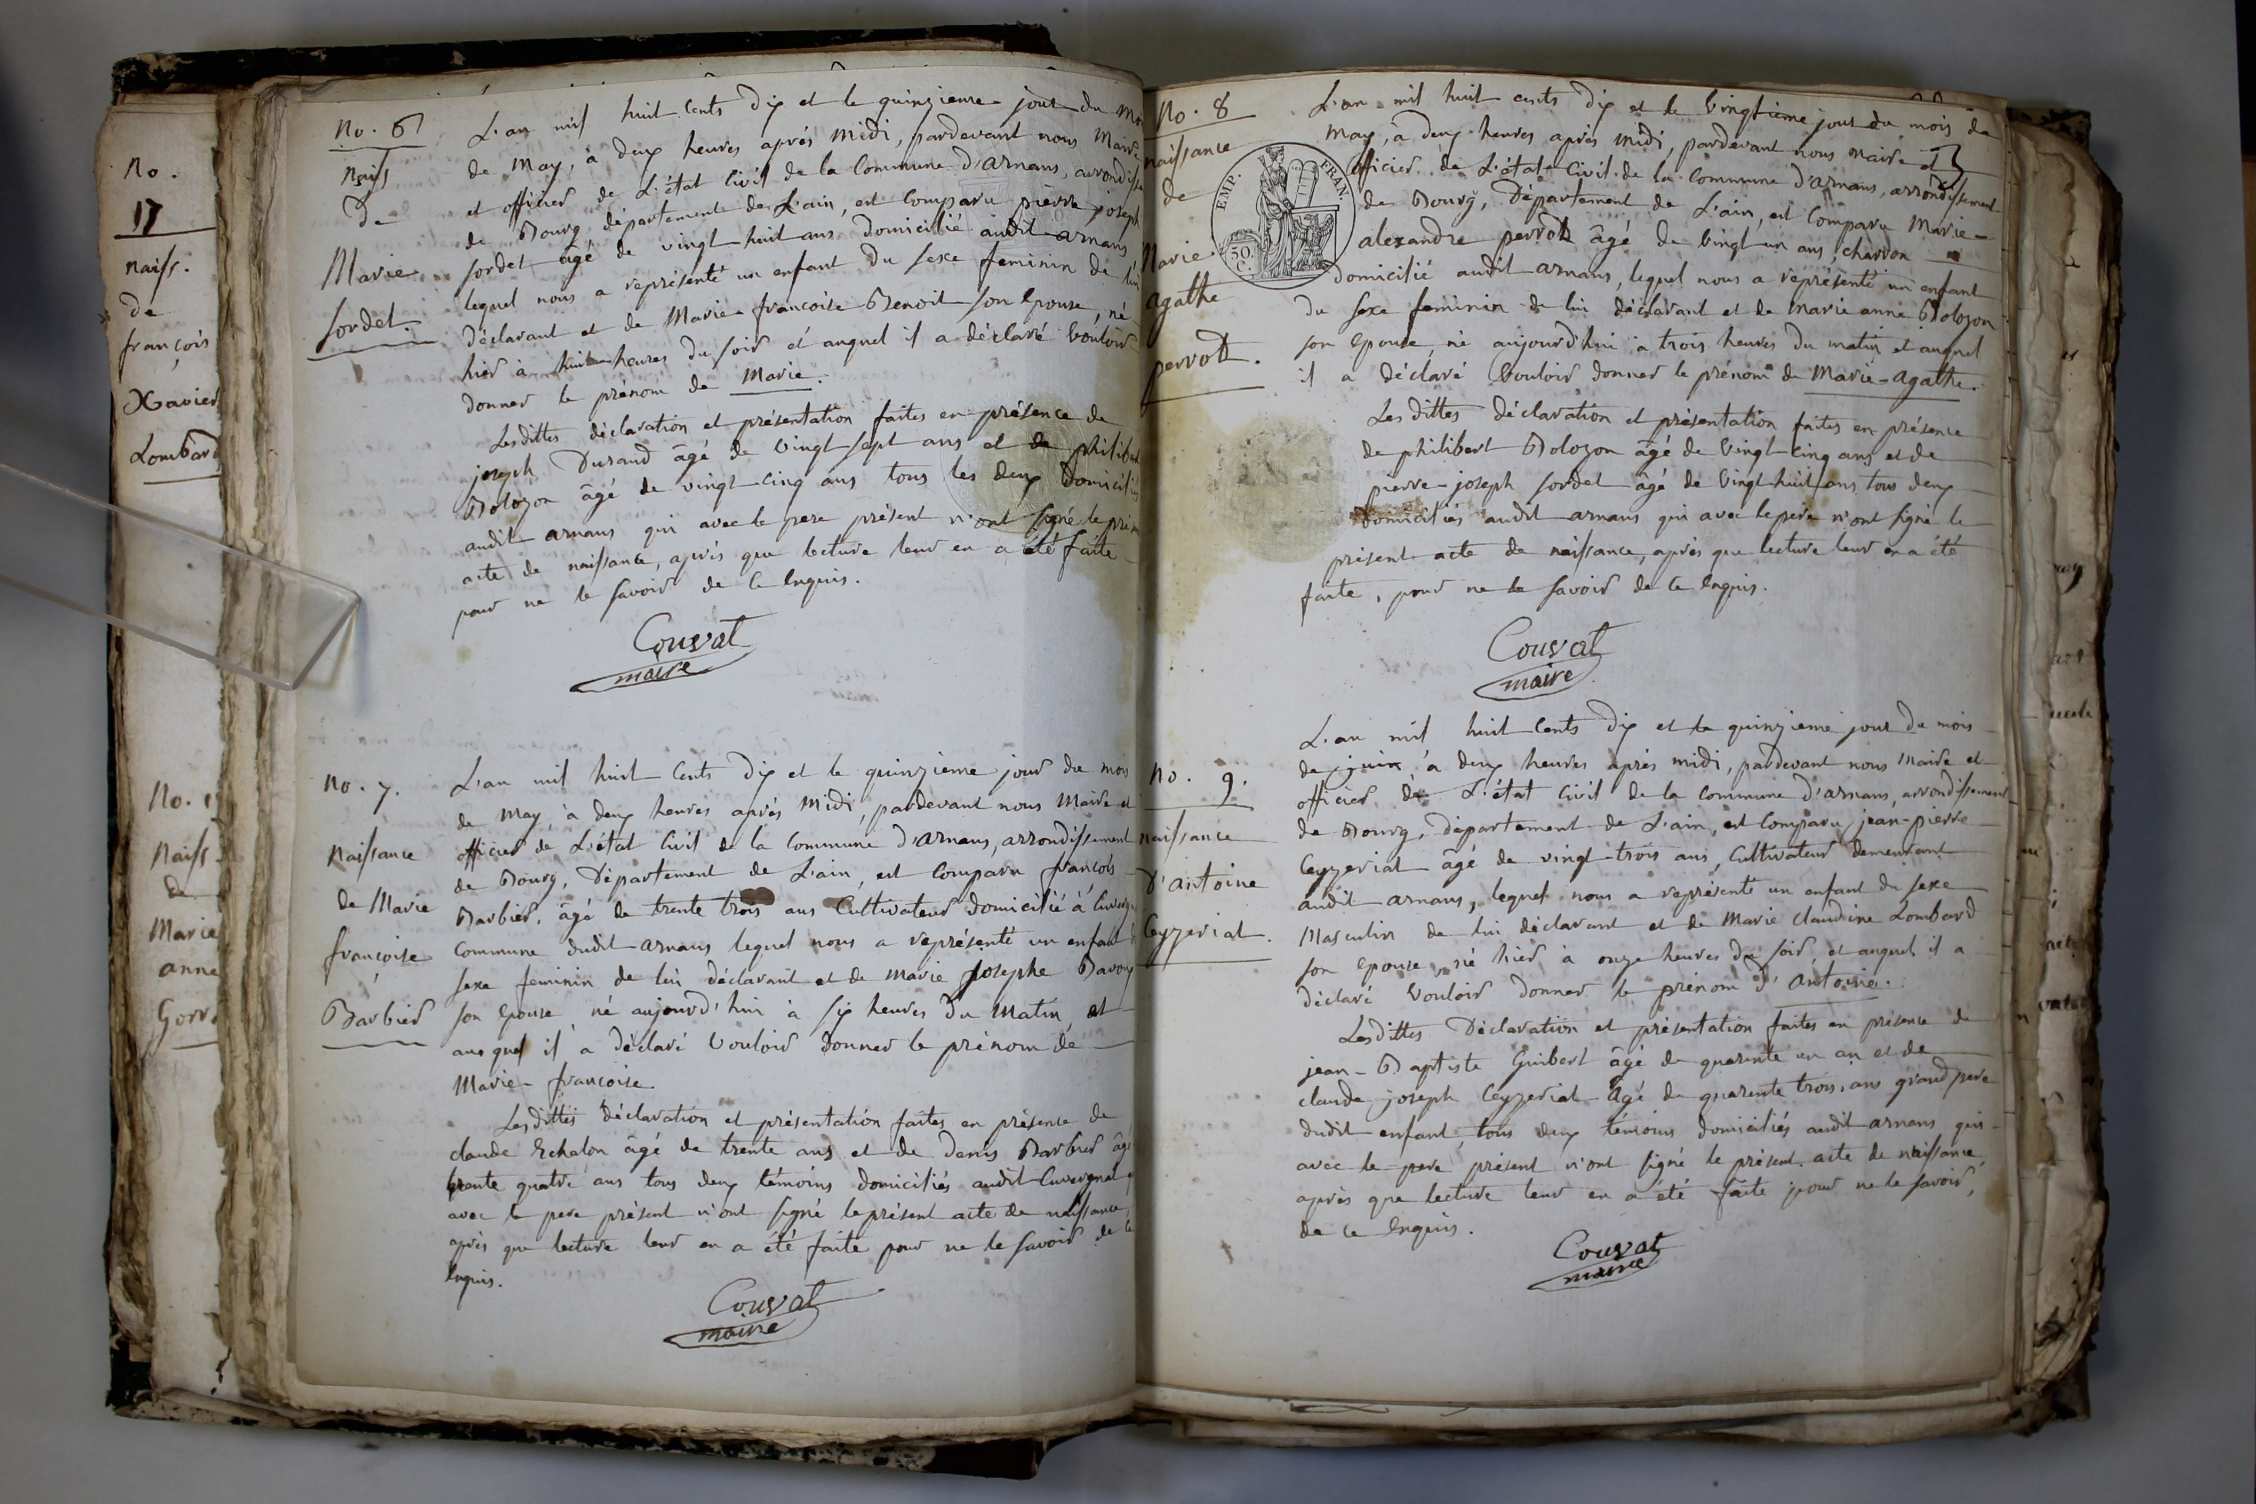 No.
17
naiss.
de
françois
Xavier
Lombard
No.
Naiss
de
Marie
anne
No. 6
Naiss
de
Marie
sordet
L'an mil huit cents dix et le quinzieme jour du
de May, à deux heures après midi, pardevant nous Maire
et officier de L'état Civil de la Commune d'arnans, arrondisse
de Bourg département de L'ain, est Comparu pierre joseph
sordet âgé de vingt huit ans domicilié audit arnans
lequel nous a représenté un enfant du sexe feminin de lui
déclarant et de Marie françoise Benoit son Epouse, né
hier à huit heures du soir et auquel il a déclaré vouloir
donner le prénom de Marie.
Lesdittes déclaration et présentation faites en présence de
joseph Durand âgé de vingt sept ans et de philibert
Bolozon âgé de vingt cinq ans tous les deux domiciliés
audit arnans qui avec le pere présent n'ont signé le
acte de naissance, après que lecture leur en a été faite
pour ne le savoir de ce Enquis.
Couvat
maire
No. 7.
Naissance
de Marie
françoise
Barbier
L'an mil huit Cents dix et le quinzieme jour du mois
de May, à deux heures après Midi, pardevant nous Maire et
officier de L'état Civil de la Commune d'arnans, arrondissement
de Bourg, Département de L'ain, est Comparu françois
Barbier, âgé de trente trois ans Cultivateur domicilié à
Commune dudit arnans lequel nous a représenté un enfant
sexe feminin de lui déclarant et de Marie Josephe
son Epouse né aujourd'hui à six heures du Matin, et
auquel il a déclaré Vouloir donner le prénom de
Marie-françoise
Lesdittes déclaration et présentation faites en présence de
claude Echalon âgé de trente ans et de Denis Barbier âgé
trente quatre ans tous deux témoins domiciliés audit
avec le pere présent n'ont signé le présent acte de naissance,
après que lecture leur en a été faite pour ne le savoir de ce
Enquis.
Couvat
maire
No. 8
naissance
de
Marie
agathe
perrod.
EMP. FRAN.
50.
C.
L'an mil huit cents dix et le vingtieme jour du mois de
May, à deux heures après midi, pardevant nous maire et
officier de L'état Civil de la Commune d'arnans, arrondissement
de Bourg, Département de L'ain, est Comparu Marie
alexandre perrod âgé de vingt un ans, charron
domicilié audit arnans, lequel nous a représenté un enfant
du sexe feminin de lui déclarant et de marie anne Bolozon
son Epouse né aujourd'hui à trois heures du matin et auquel
il a déclaré Vouloir donner le prénom de Marie-agathe.
Les dittes déclaration et présentation faites en présence
de philibert Bolozon âgé de vingt cinq ans et de
pierre-joseph sordet âgé de vingt huit ans, tous deux
domiciliés audit arnans qui avec le pere n'ont signé le
présent acte de naissance, après que lecture leur en a été
faite, pour ne le savoir de ce Enquis.
Couvat
maire
No. 9.
naissance
d'antoine
Ceyzeriat.
L'an mil huit Cents dix et le quinzieme jour du mois
de juin, à deux heures après midi, pardevant nous Maire et
officier de L'état Civil de la commune d'arnans, arrondissement
de Bourg, Département de L'ain, est Comparu jean-pierre
Ceyzeriat âgé de vingt trois ans, Cultivateur demeurant
audit arnans, lequel nous a représenté un enfant du sexe
Masculin de lui déclarant et de Marie claudine Lombard
son Epouse, né hier à onze heures du soir, et auquel il a
déclaré Vouloir donner le prénom d'antoine.
Lesdittes Déclaration et présentation faites en présence de
jean-Baptiste Guibert âgé de quarente un an et de
claude-joseph Ceyzeriat âgé de quarente trois ans grand pere
dudit enfant, tous deux témoins domiciliés audit arnans qui
avec le pere présent n'ont signé le présent acte de naissance,
après que lecture leur en a été faite pour ne le savoir,
de ce Enquis.
Couvat
maire